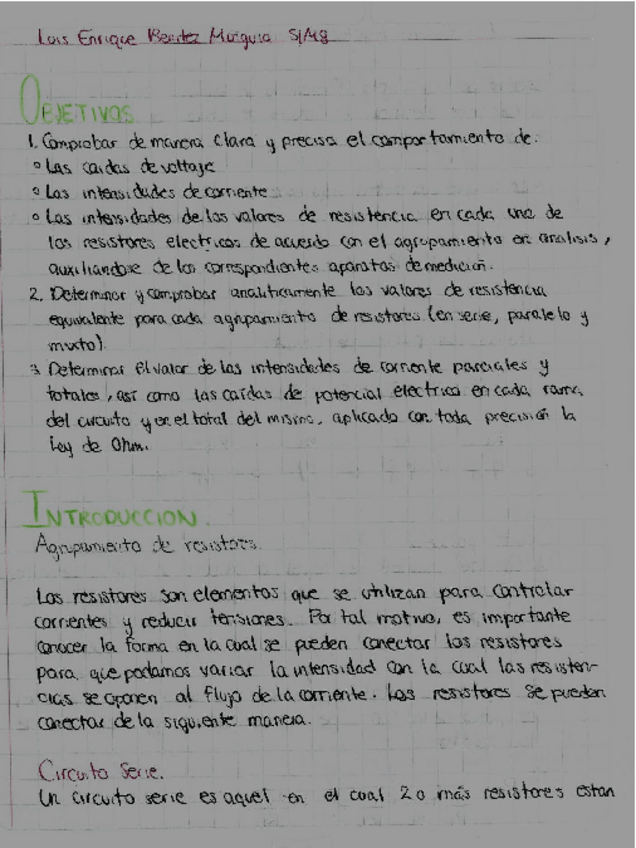 Luis Enrique Benitez Murguia 5IM8
OBJETIVOS
1. Comprobar de manera clara y precisa el comportamiento de:
° Las caidas de voltaje
° Las intensidades de corriente
° Las intensidades de los valores de resistencia en cada uno de
los resistores electricos de acuerdo con el agrupamiento en analisis,
auxiliandose de los correspondientes aparatos de medición.
2. Determinar y comprobar analiticamente los valores de resistencia
equivalente para cada agrupamiento de resistores (en serie, paralelo y
mixto).
3. Determinar El valor de las intensidades de corriente parciales y
totales, así como las caídas de potencial electrico en cada rama
del circuito y en el total del mismo, aplicado con toda precisión la
Ley de Ohm.
INTRODUCCION
Agrupamiento de resistores
Los resistores son elementos que se utilizan para controlar
corrientes y reducir tensiones. Por tal motivo, es importante
conocer la forma en la cual se pueden conectar los resistores
para que podamos variar la intensidad con la cual las resisten-
cias se oponen al flujo de la corriente. Los resistores se pueden
conectar de la siguiente manera.
Circuito Serie.
Un circuito serie es aquel en el cual 2 o más resistores estan